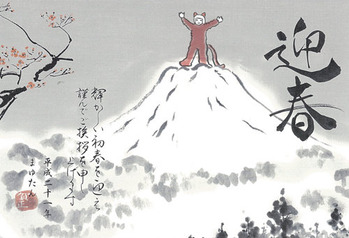 迎春
輝かしい初春を迎え
謹んでご挨拶を申し
上げます
平成二十一年
まゆたん